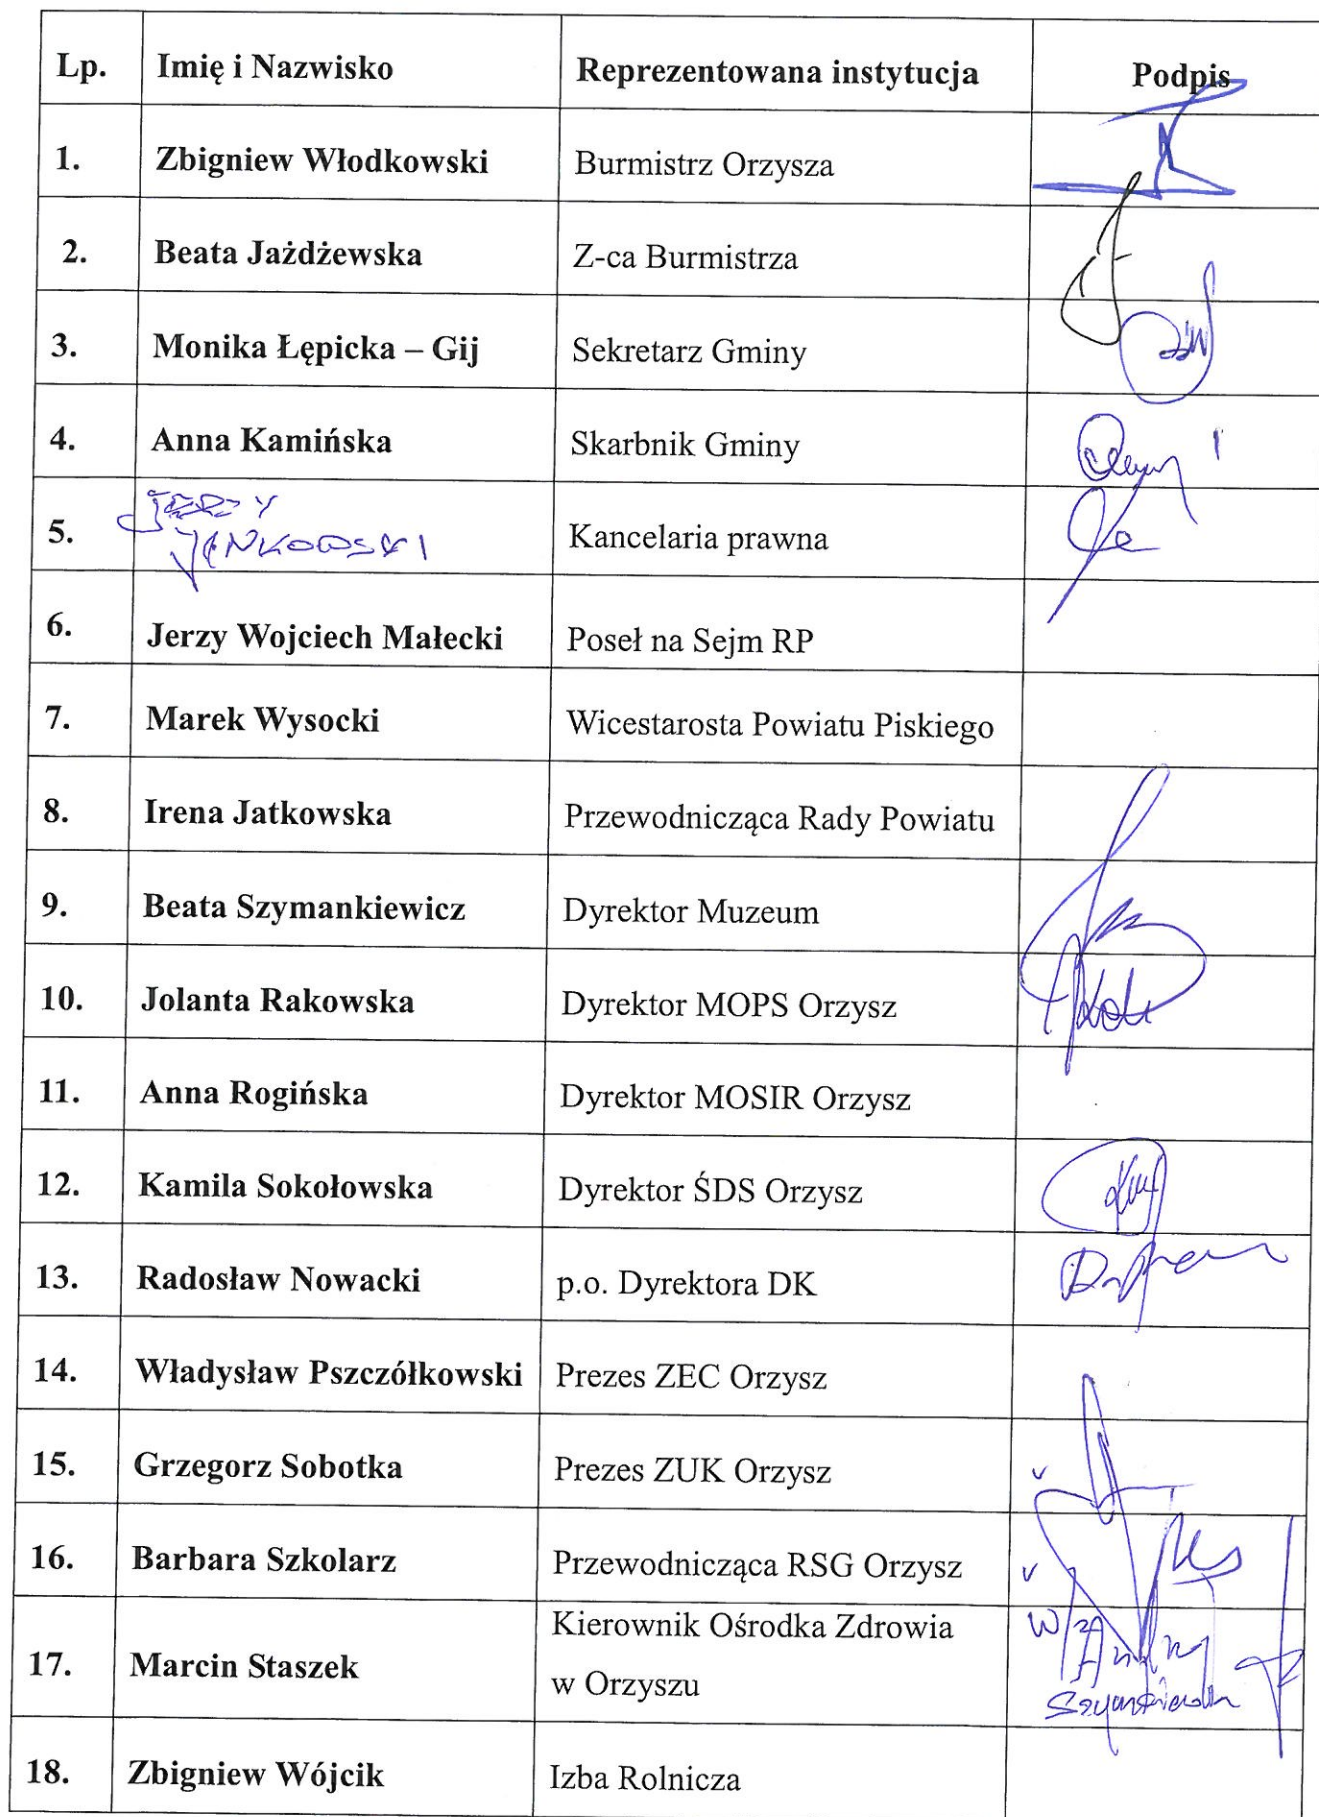 Lp. Imię i Nazwisko Reprezentowana instytucja Podpis
1. Zbigniew Włodkowski Burmistrz Orzysza
2. Beata Jażdżewska Z-ca Burmistrza
3. Monika Łępicka – Gij Sekretarz Gminy
4. Anna Kamińska Skarbnik Gminy
JERZY
5. JANKOWSKI Kancelaria prawna
6. Jerzy Wojciech Małecki Poseł na Sejm RP
7. Marek Wysocki Wicestarosta Powiatu Piskiego
8. Irena Jatkowska Przewodnicząca Rady Powiatu
9. Beata Szymankiewicz Dyrektor Muzeum
10. Jolanta Rakowska Dyrektor MOPS Orzysz
11. Anna Rogińska Dyrektor MOSIR Orzysz
12. Kamila Sokołowska Dyrektor ŚDS Orzysz
13. Radosław Nowacki p.o. Dyrektora DK
14. Władysław Pszczółkowski Prezes ZEC Orzysz
15. Grzegorz Sobotka Prezes ZUK Orzysz
16. Barbara Szkolarz Przewodnicząca RSG Orzysz
Kierownik Ośrodka Zdrowia
17. Marcin Staszek w Orzyszu
18. Zbigniew Wójcik Izba Rolnicza